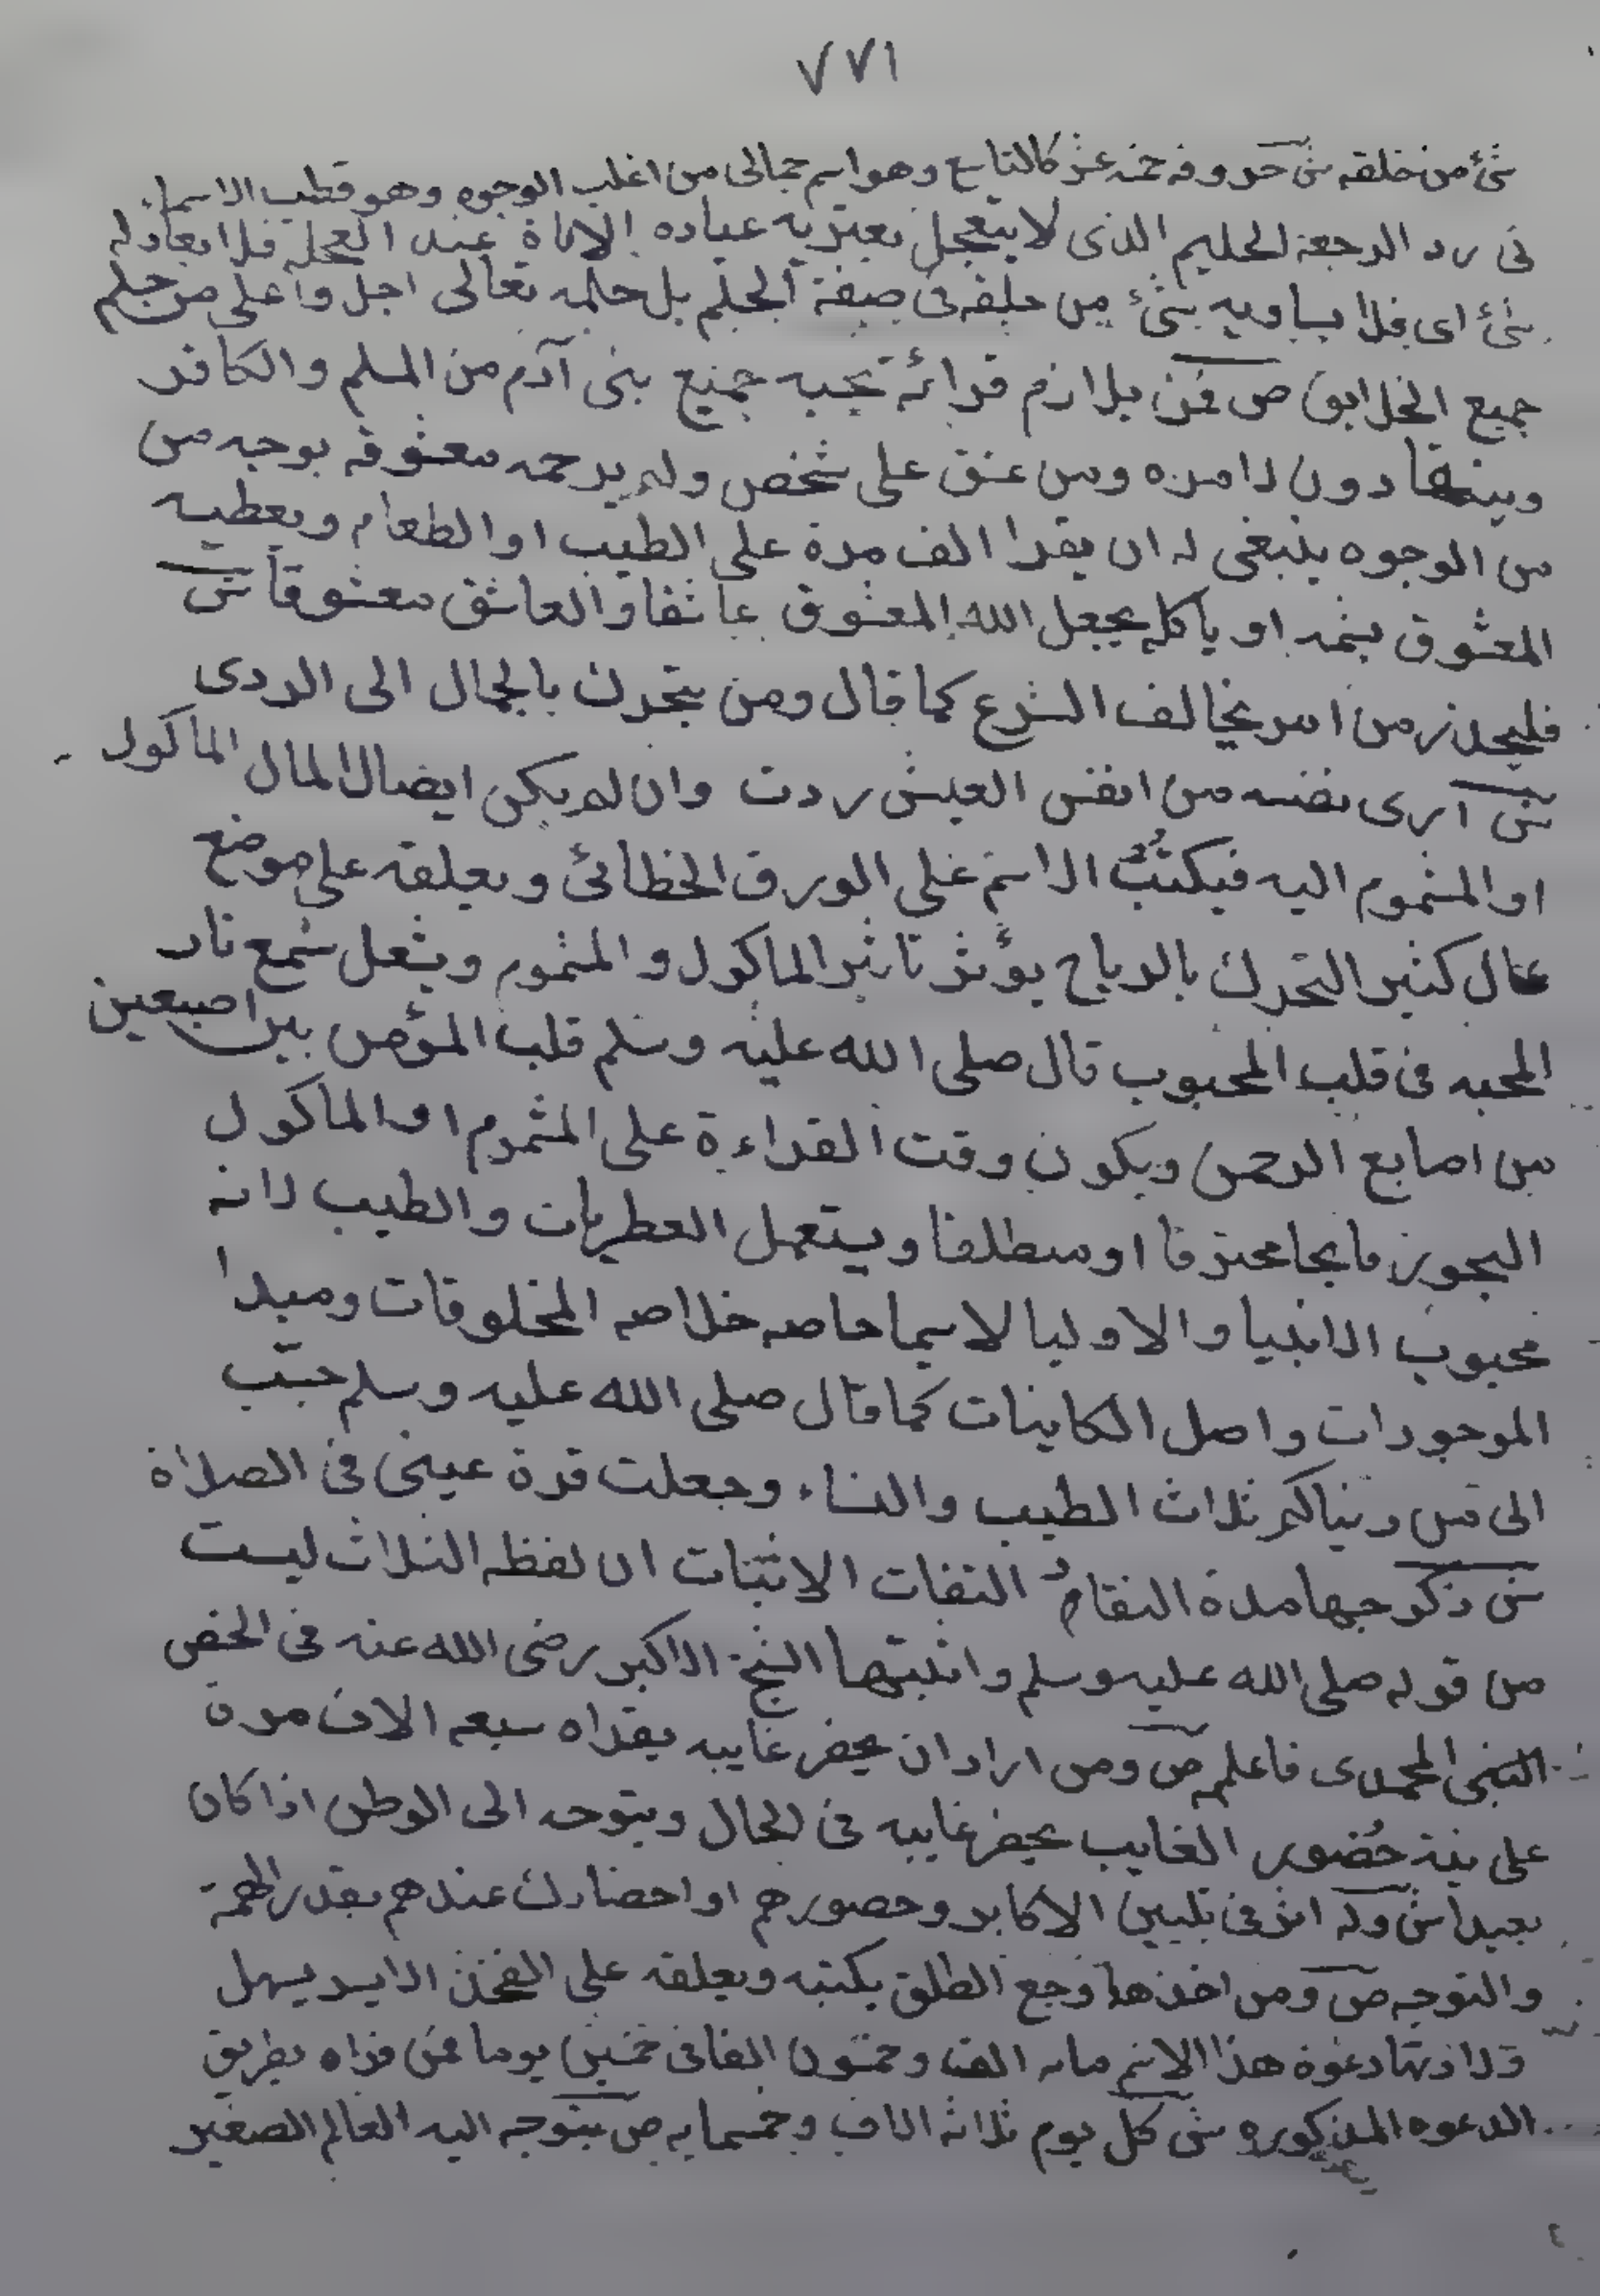 ٧٧١
شئ من خلقه ش حروفه خمسة عشر كالتاسع وهو اسم جمالى من اغلب الوجوه وهو قطب الاسماء
فى رد الرجعة الحليم الذى لا يتعجل بعترته عباده الاناة عند العجلة فلا يعادله
شئ اى فلا يساويه شئ من خلقه فى صفة الحلم بل حلمه تعالى اجل واعلى من حلم
جميع الخلايق ص فمن يلازم قرائته تحبه جميع بنى آدم من المسلم والكافر
وينقادون لامره ومن عشق على شخص ولم يرحمه معشوقه بوجه من
من الوجوه ينبغى له ان يقرا الف مرة على الطيب او الطعام ويعطيه
المعشوق يشمه او ياكله يجعل الله المعشوق عاشقا والعاشق معشوقاً ش
فليحذر من امر يخالف الشرع كما قال ومن يتحرك بالجمال الى الردى
ش ارى نفسه من انفس العيش ردت وان لم يكن ايصال المال الماكول
او المشموم اليه فيكتب الاسم على الورق الخطائى ويعلقه على موضع
عال كثير التحرك بالرياح يؤثر تاثير الماكول والمشموم ويشعل شمع نار
المحبه فى قلب المحبوب قال صلى الله عليه وسلم قلب المؤمن بين اصبعين
من اصابع الرحمن ويكون وقت القراءة على المشموم او الماكول
البخور فايحا محترقا او مطلقا ويستعمل العطريات والطيب لانه
محبوب الانبيا والاوليا لا سيما خاصه خلاصه المخلوقات ومبدا
الموجودات واصل الكاينات كما قال صلى الله عليه وسلم حبّب
الى من دنياكم ثلاث الطيب والنساء وجعلت قرة عينى فى الصلاة
ش ذكر جبها مدة النقام التفات الاثبات ان لفظه الثلاث ليست
من قوله صلى الله عليه وسلم واثبتها الشيخ الاكبر رضى الله عنه فى الفص
النبى المحمدى فاعلم ص ومن اراد ان يحضر غايبه يقراه سبعه الاف مرة
على نية حُضور الغايب يحضر غايبه فى الحال ويتوجه الى الوطن اذا كان
بعيدا ش وله اثر فى تليين الاكابر وحضورهم او احضارك عندهم بقدر الهمة
والتوجه ص ومن اخذها وجع الطلق يكتبه ويعلقه على الفخذ الايسر يسهل
ولادتها دعوة هذا الاسم مايه الف وخمسون الفا فى خمسين يوما فمن قراه بطريق
الدعوه المذكوره ش كل يوم ثلاثة الاف وخمسمايه ص يتوجه اليه العالم الصغير